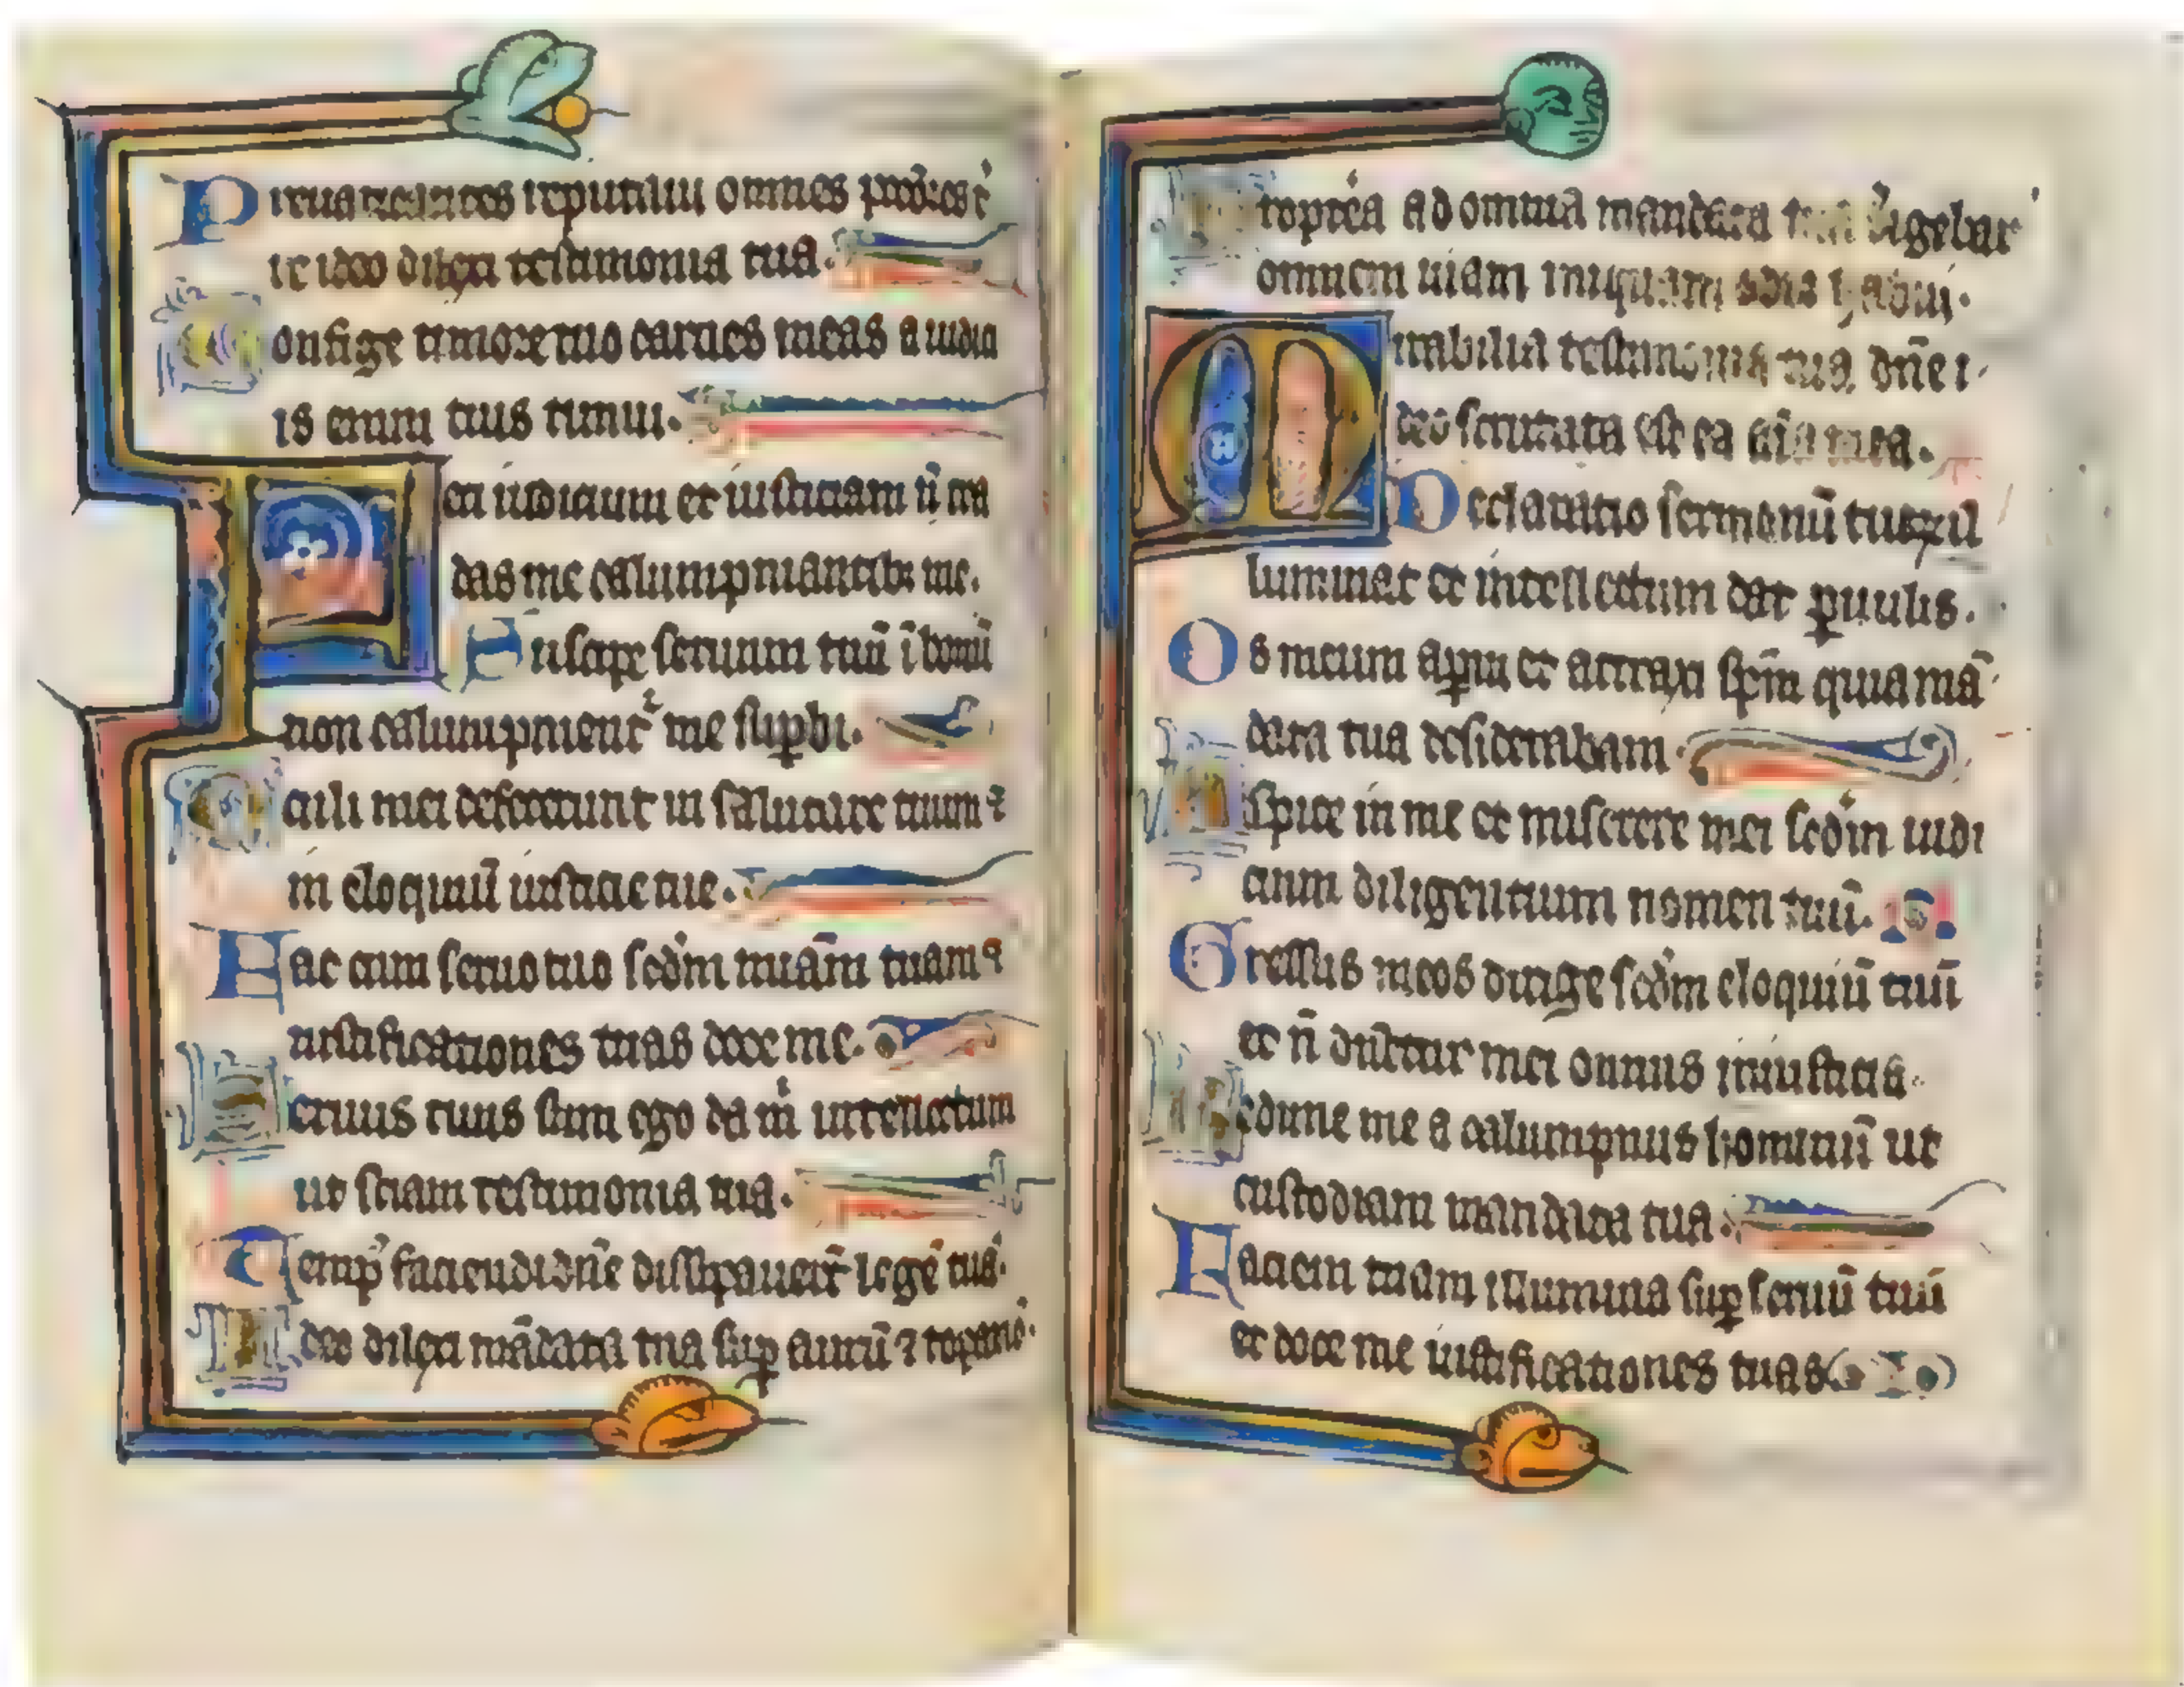 Preuaricantes reputaui omnes pctores t̛
re ideo dilexi testimonia tua.
Confige timore tuo carnes meas a iudici
is enim tuis timui.
Feci iudicium et iusticiam n̄ tra
das me calumpniantib; me.
Suscipe seruum tuū ī bonū
non calumpnient᷑ me suꝑbi.
Oculi mei defecerunt in salutare tuum ⁊
in eloquiū iusticie tue.
Fac cum seruo tuo scd̄m miam̄ tuam ⁊
iustificationes tuas doce me.
Seruus tuus sum ego da m̍ intellectum
ut sciam testimonia tua.
Temp᷒ faciendi dn̄e dissipauer̄t legē tuā.
Ideo dilexi mādata tua suꝑ aurū ⁊ topaziō.
Proptea ad omnia mandata tua dirigebar
omnem uiam iniquam odio habui.
Mirabilia testimonia tua dn̄e i
deo scrutata est ea aīa mea.
Declaratio sermonū tuoꝝ il
luminat et intellectum dat ꝑuulis.
Os meum aperui et attraxi spm̄ quia mā
data tua desiderabam.
Aspice in me et miserere mei scd̄m iudi
cium diligentium nomen tuū.
Gressus meos dirige scd̄m eloquiū tuū
et n̄ dn̄etur mei omnis iniusticia.
Redime me a calumpniis hominū ut
custodiam mandata tua.
Faciem tuam illumina suꝑ seruū tuū
et doce me iustificationes tuas